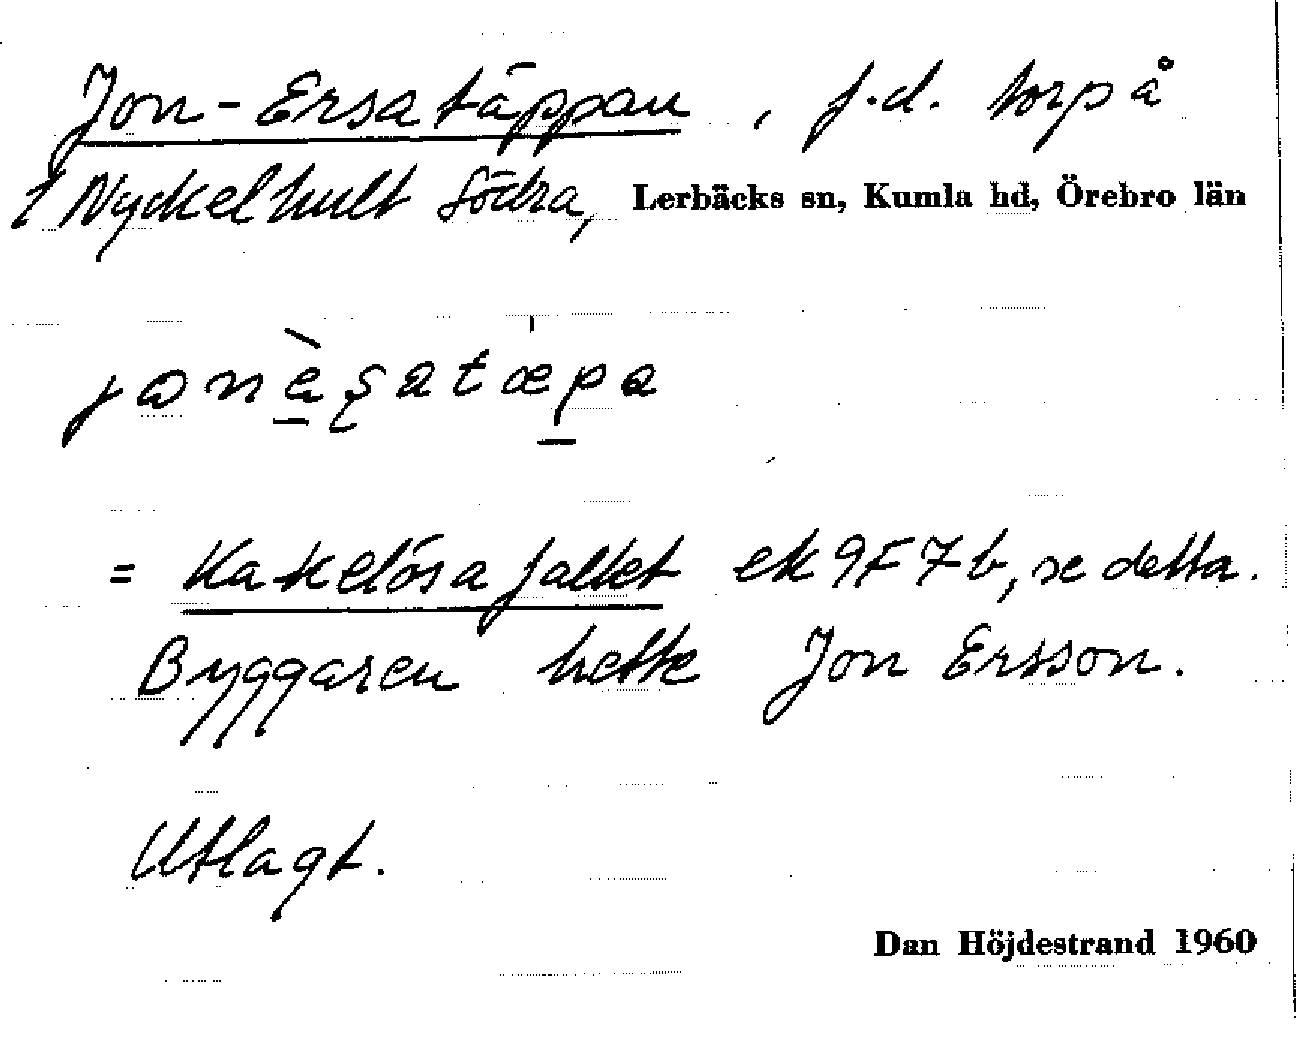 Jon-Ersatäppan, f.d. torp å
1 Nyckelhult Södra, Lerbäcks sn, Kumla hd, Örebro län
= Kakelösafallet ek 9F7b, se detta.
Byggaren hette Jon Ersson.
Utlagt.
Dan Höjdestrand 1960